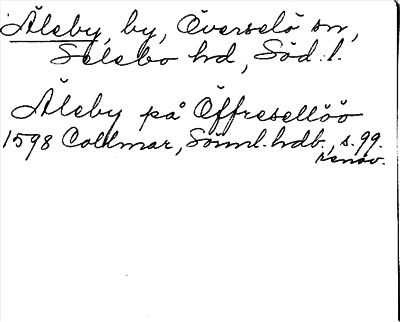 Äleby, by, Överselö sn,
Selebo hd, Söd. l.
Äleby på Öffresellöö
1598 Collmar, Sörml. hdb., s. 99.
renov.